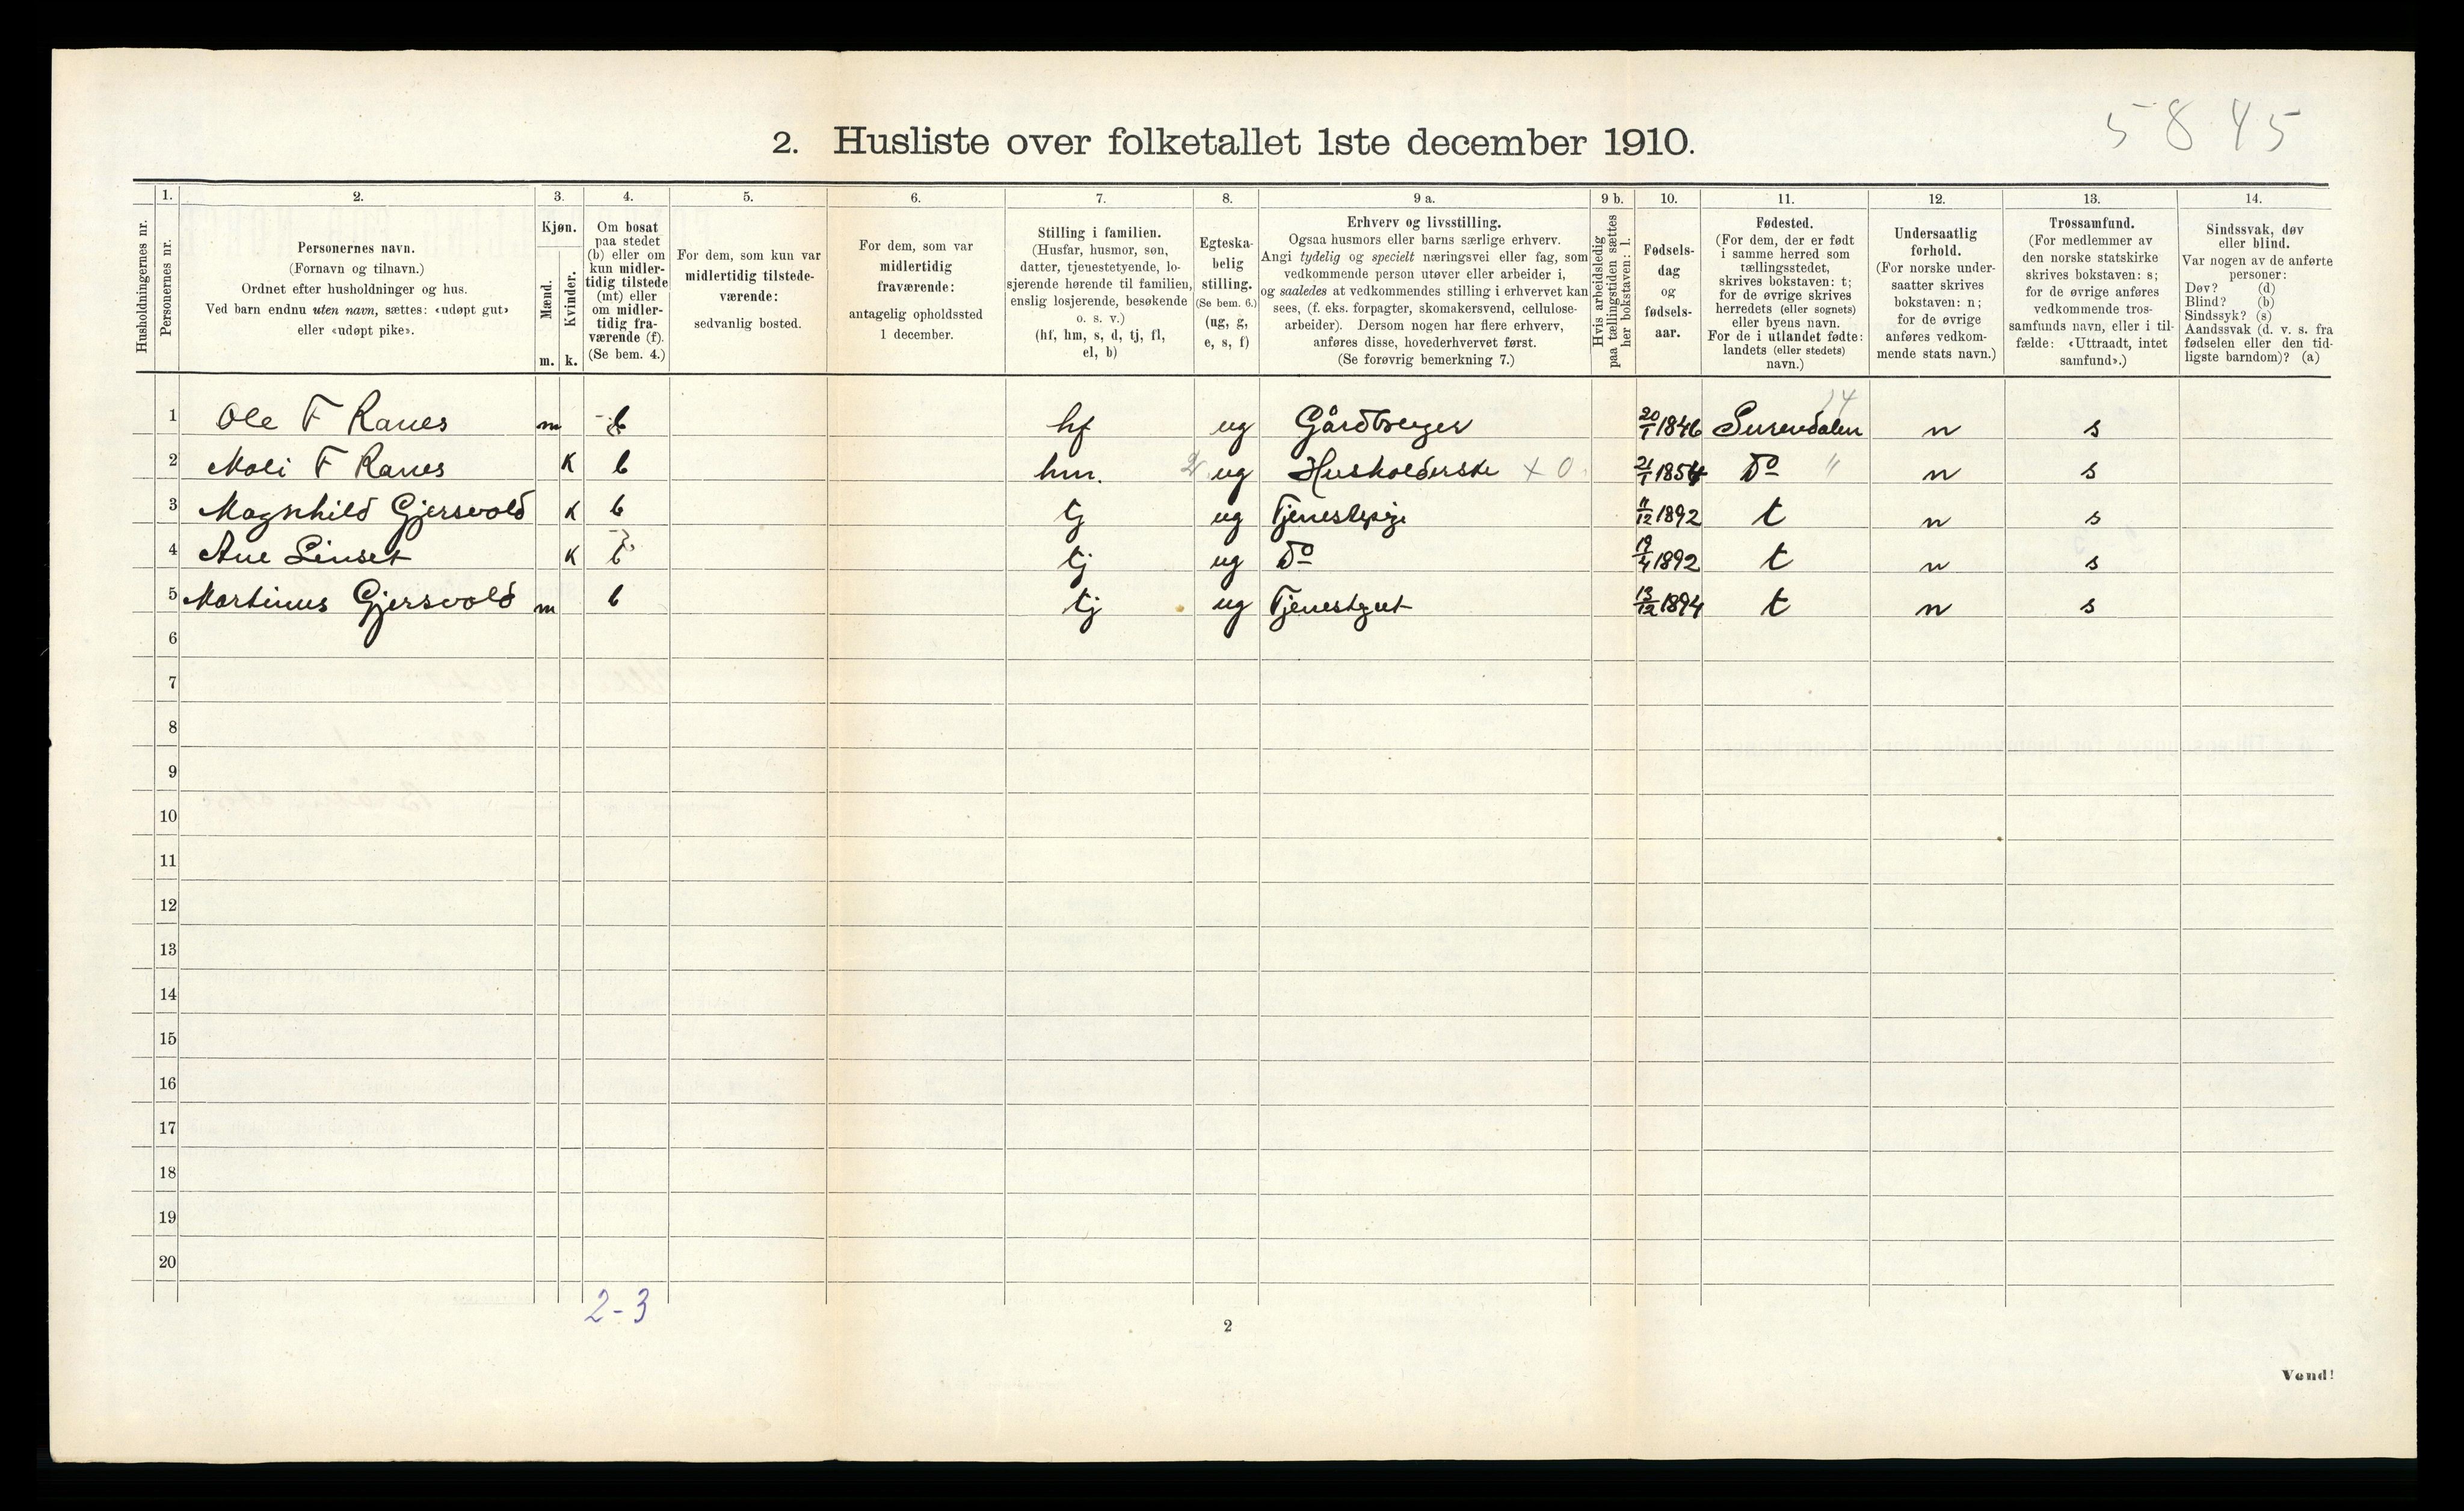 5845
2. Husliste over folketallet 1ste december 1910.
Husholdningernes nr.
1.
Personernes nr.
2.
Personernes navn.
(Fornavn og tilnavn.)
Ordnet efter husholdninger og hus.
Ved barn endnu uten navn, sættes: «udøpt gut»
eller «udøpt pike».
3.
Kjøn.
Mænd.
m.
Kvinder.
k.
4.
Om bosat
paa stedet
(b) eller om
kun midler-
tidig tilstede
(mt) eller
om midler-
tidig fra-
værende (f).
(Se bem. 4.)
5.
For dem, som kun var
midlertidig tilstede-
værende:
sedvanlig bosted.
6.
For dem, som var
midlertidig
fraværende:
antagelig opholdssted
1 december.
7.
Stilling i familien.
(Husfar, husmor, søn,
datter, tjenestetyende, lo-
sjerende hørende til familien,
enslig losjerende, besøkende
o. s. v.)
(hf, hm, s, d, tj, fl,
el, b)
8.
Egteska-
belig
stilling.
(Se bem. 6.)
(ug, g,
e, s, f)
9 a.
Erhverv og livsstilling.
Ogsaa husmors eller barns særlige erhverv.
Angi tydelig og specielt næringsvei eller fag, som
vedkommende person utøver eller arbeider i,
og saaledes at vedkommendes stilling i erhvervet kan
sees, (f. eks. forpagter, skomakersvend, cellulose-
arbeider). Dersom nogen har flere erhverv,
anføres disse, hovederhvervet først.
(Se forøvrig bemerkning 7.)
9 b.
Hvis arbeidsledig
paa tællingstiden sættes
her bokstaven: l.
10.
Fødsels-
dag
og
fødsels-
aar.
11.
Fødested.
(For dem, der er født
i samme herred som
tællingsstedet,
skrives bokstaven: t;
for de øvrige skrives
herredets (eller sognets)
eller byens navn.
For de i utlandet fødte:
landets (eller stedets)
navn.)
12.
Undersaatlig
forhold.
(For norske under-
saatter skrives
bokstaven: n;
for de øvrige
anføres vedkom-
mende stats navn.)
13.
Trossamfund.
(For medlemmer av
den norske statskirke
skrives bokstaven: s;
for de øvrige anføres
vedkommende tros-
samfunds navn, eller i til-
fælde: «Uttraadt, intet
samfund».)
14.
Sindssvak, døv
eller blind.
Var nogen av de anførte
personer:
Døv? (d)
Blind? (b)
Sindssyk? (s)
Aandssvak (d. v. s. fra
fødselen eller den tid-
ligste barndom)? (a)
1 Ole F Ranes m b hf ug Gårdbruger 20/1 1846 Surendalen n s
2 Mali F Ranes K b hm. ug Husholderske × 0 21/1 1854 Do " n s
3 Magnhild Gjersvold K b tj ug Tjenestepige 11/12 1892 t n s
4 Ane Linset K b tj ug Do 19/4 1892 t n s
5 Martinus Gjersvold m b tj ug Tjenestgut 13/12 1894 t n s
6
7
8
9
10
11
12
13
14
15
16
17
18
19
20
2-3
2
Vend!